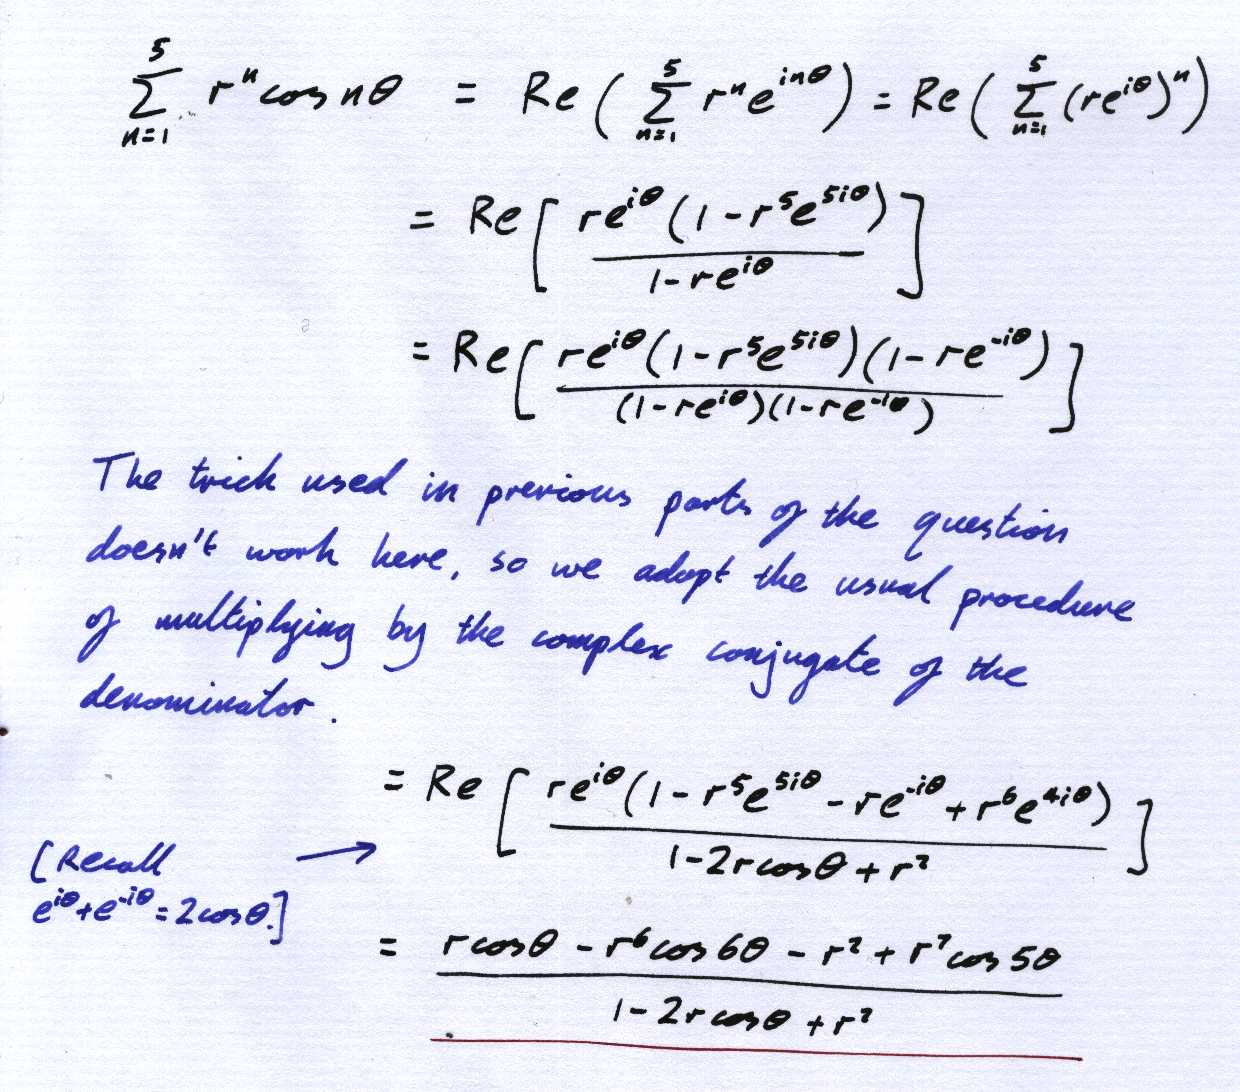 ∑_{n=1}^{5} r^n cos nθ = Re ( ∑_{n=1}^{5} r^n e^{inθ} ) = Re ( ∑_{n=1}^{5} (re^{iθ})^n )
= Re [ re^{iθ} (1 - r^5 e^{5iθ}) / 1 - re^{iθ} ]
= Re [ re^{iθ} (1 - r^5 e^{5iθ}) (1 - re^{-iθ}) / (1 - re^{iθ})(1 - re^{-iθ}) ]
The trick used in previous parts of the question
doesn't work here, so we adopt the usual procedure
of multiplying by the complex conjugate of the
denominator.
= Re [ re^{iθ} (1 - r^5 e^{5iθ} - re^{-iθ} + r^6 e^{4iθ}) / 1 - 2r cosθ + r^2 ]
[Recall
e^{iθ} + e^{-iθ} = 2cosθ.]
= r cosθ - r^6 cos 6θ - r^2 + r^7 cos 5θ / 1 - 2r cosθ + r^2